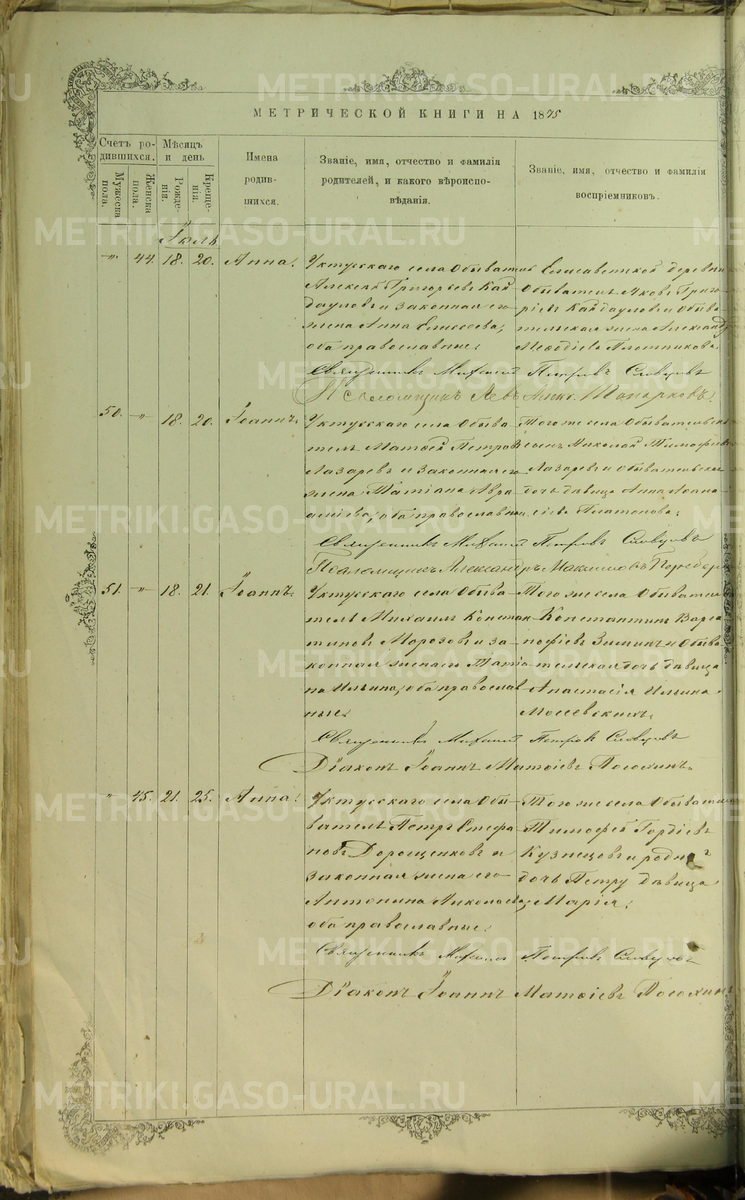 МЕТРИЧЕСКОЙ КНИГИ НА 1875
Счетъ ро-
дившихся.
Мѣсяцъ
и день
Имена
родив-
шихся.
Званіе, имя, отчество и фамилія
родителей, и какого вѣроиспо-
вѣданія.
Званіе, имя, отчество и фамилія
воспріемниковъ.
Мужеска
пола.
Женска
пола.
Рожде-
нія.
Креще-
нія.
Іюль
„ 44. 18. 20. Анна.
Уктусскаго села Обыватель
Алексѣй Григорьевъ Кай-
даулов и законная его
жена Анна Елисеева,
оба православные.
Елисаветской деревни
Обыватель Яковъ Григо-
рьевъ Кайдаулов и Обыва-
тельская жена Александра
Меѳодіева Плотникова.
Священникъ Михаилъ Петровъ Словцовъ
Псаломщикъ Левъ Топорковъ.
50. „ 18. 20. Іоаннъ.
Уктусскаго села Обыва-
тель Матвѣй Петровъ
Лазаревъ и законная его
жена Татіана Авра-
аміева, оба православные.
Того же села Обывательскій
сынъ Николай Тимофеевъ
Лазаревъ и Обывательская
дочь дѣвица Анна
Платонова.
Священникъ Михаилъ Петровъ Словцовъ
Псаломщикъ Александръ Максимовъ
51. „ 18. 21. Іоаннъ.
Уктусскаго села Обыва-
тель Михаилъ Констан-
тиновъ Морозовъ и за-
конная жена его Татіа-
на Ильина, оба православ-
ные.
Того же села Обыватель
Константинъ Варѳ
Зыминъ и Обыва-
тельская дочь дѣвица
Анастасія Ильина
Мосеевскихъ.
Священникъ Михаилъ Петровъ Словцовъ
Діаконъ Іоаннъ Матѳіевъ
„ 45. 21. 25. Анна.
Уктусскаго села Обы-
ватель Петръ Стефа-
новъ Дорощенковъ и
законная жена его
Антонина Николаева,
оба православные.
Того же села Обыватель
Тимофей Гордіевъ
Кузнецовъ и родная
дочь Петру дѣвица
Марія.
Священникъ Михаилъ Петровъ Словцовъ
Діаконъ Іоаннъ Матѳіевъ
METRIKI.GASO-URAL.RU